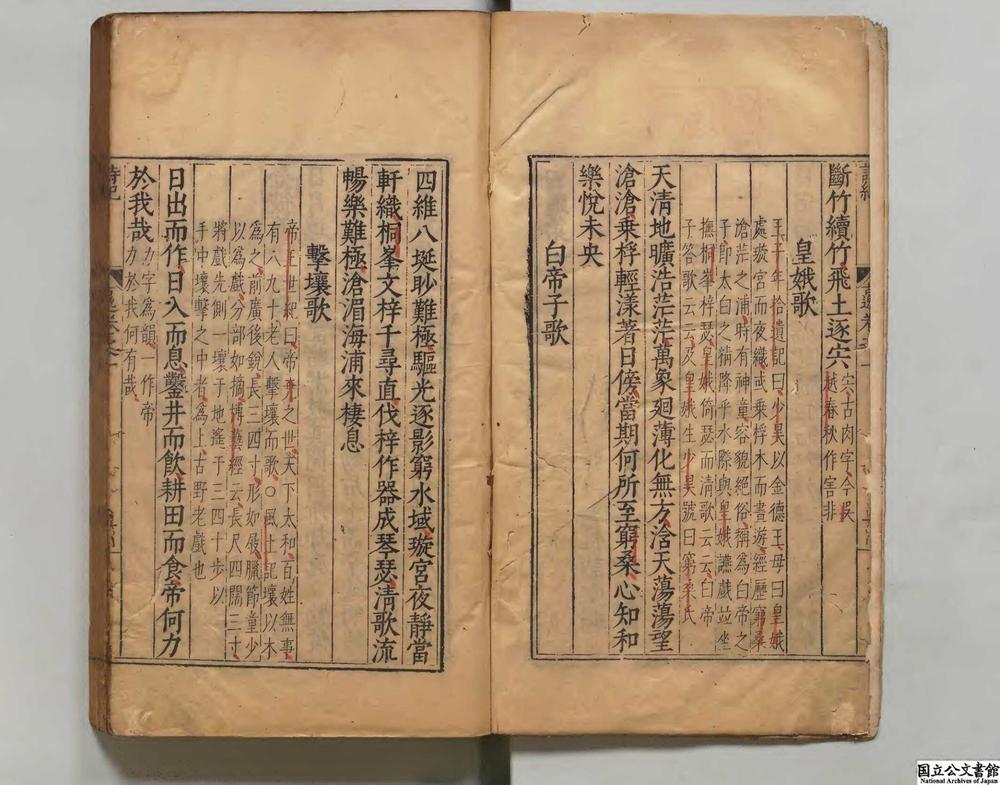 斷竹續竹飛土逐宍
宍古肉字今吳
越春秋作害非
皇娥歌
王子年拾遺記曰少昊以金德王母曰皇娥
處璇宮而夜織或乘桴木而晝游經歷窮桑
滄茫之浦時有神童容貌絕俗稱為白帝之
子即太白之精降乎水際與皇娥讌戲並坐
撫桐峯梓瑟皇娥倚瑟而清歌云云白帝
子答歌云云及皇娥生少昊號曰窮桑氏
天清地曠浩茫茫萬象廻薄化無方浛天蕩蕩望
滄滄乘桴輕漾著日傍當期何所至窮桑心知和
樂悅未央
白帝子歌
四維八埏眇難極驅光逐影窮水域璇宮夜靜當
軒織桐峯文梓千尋直伐梓作器成琴瑟清歌流
暢樂難極滄湄海浦來棲息
擊壤歌
帝王世紀曰帝堯之世天下太和百姓無事
有八九十老人擊壤而歌○風土記壤以木
為之前廣後銳長三四寸形如屐臘節童少
以為戲分部如摘博藝經云長尺四闊三寸
將戲先側一壤于地遙于三四十步以
手中壤擊之中者為上古野老戲也
日出而作日入而息鑿井而飲耕田而食帝何力
於我哉
力字為韻一作帝
力於我何有哉
国立公文書館
National Archives of Japan